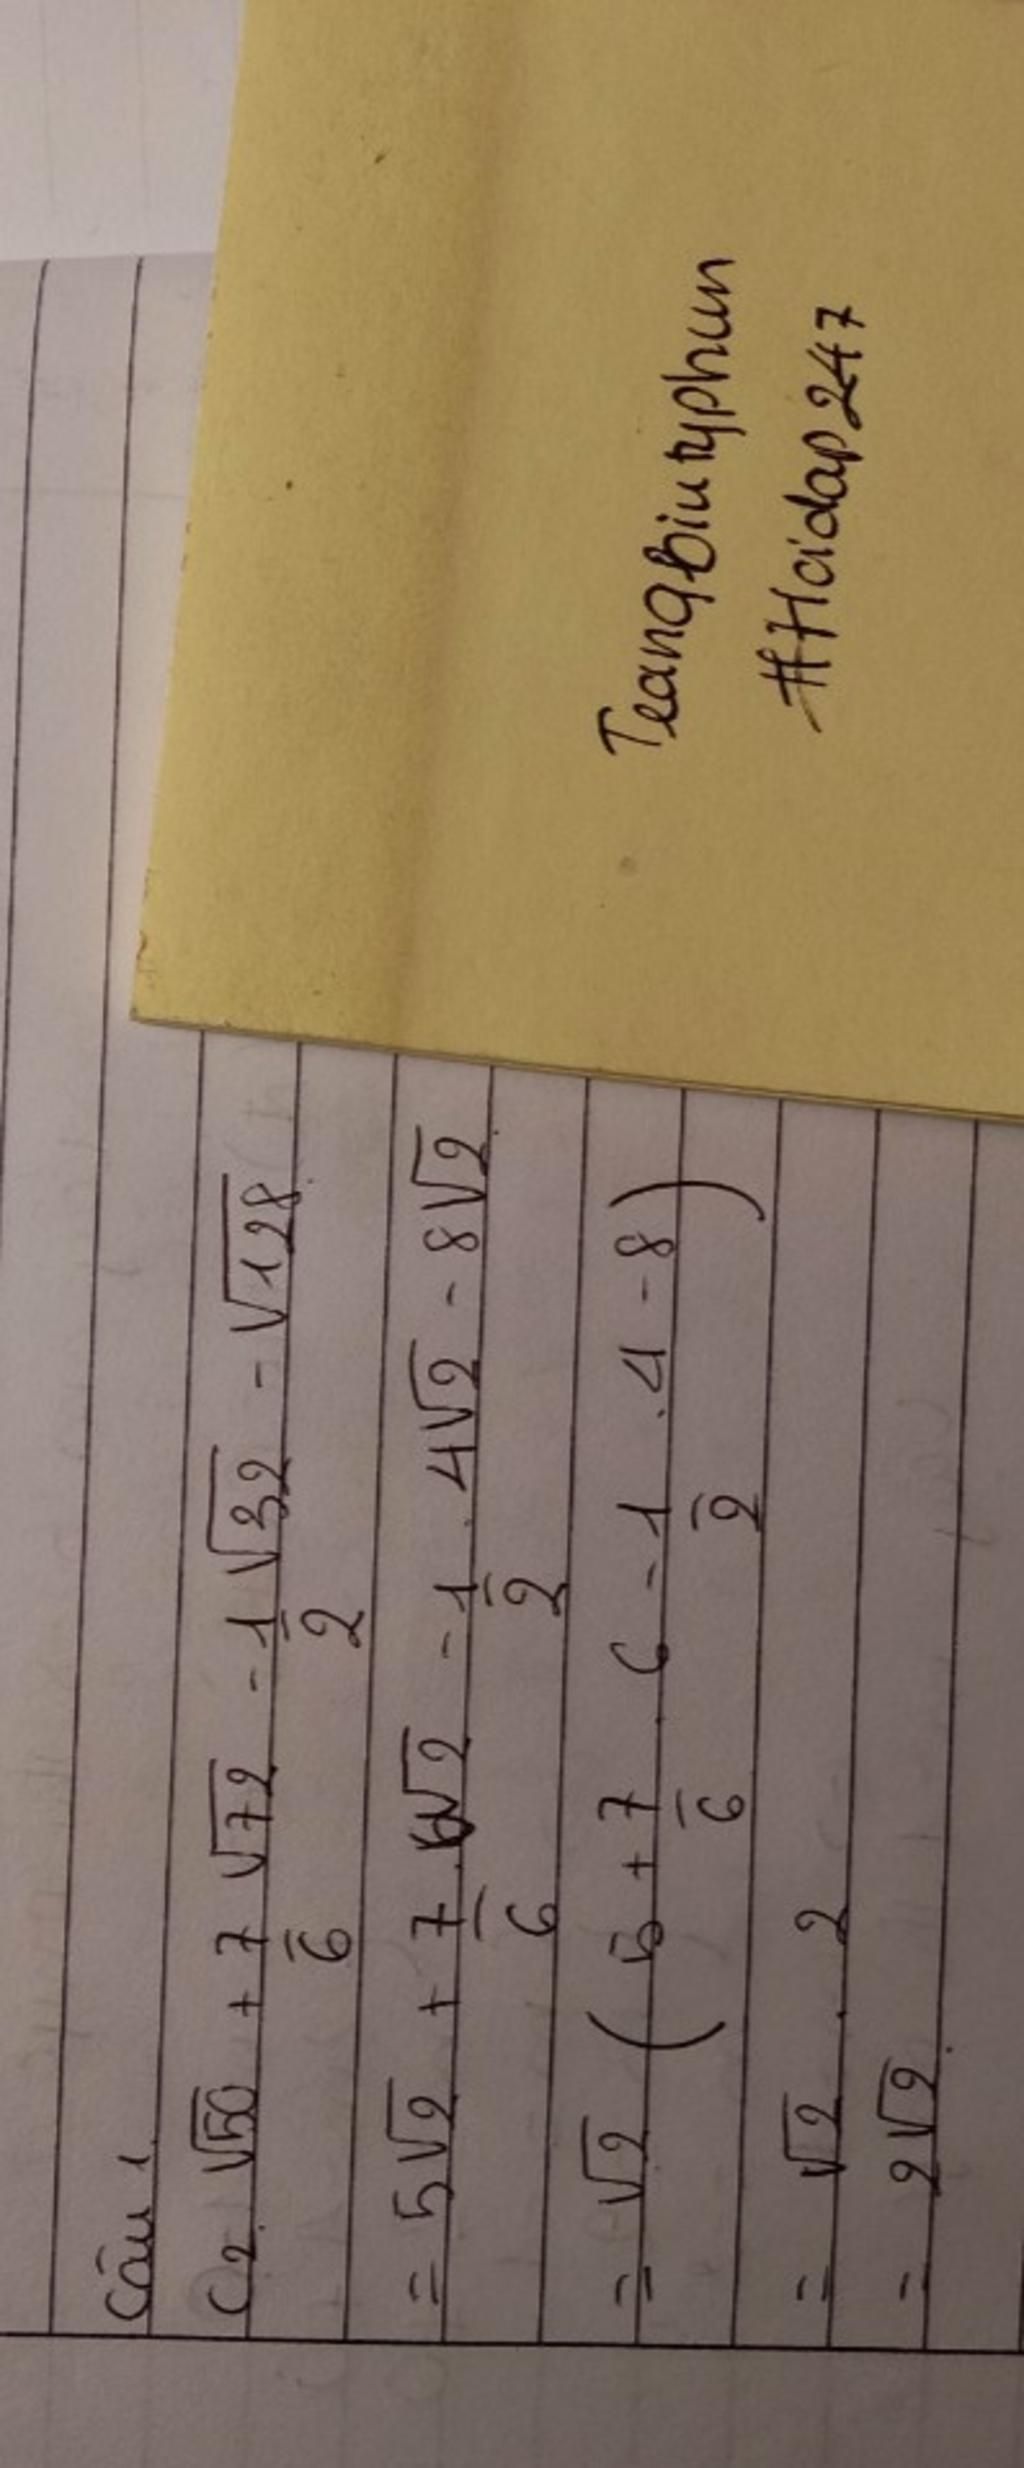 Câu 1
C2. √50 + 7/6 √72 - 1/2 √32 - √128.
= 5√2 + 7/6 . 6√2 - 1/2 . 4√2 - 8√2.
= √2 ( 5 + 7/6 . 6 - 1/2 . 4 - 8 )
= √2 . 2
= 2√2.
Teangbiutyphun
#Hoidap247